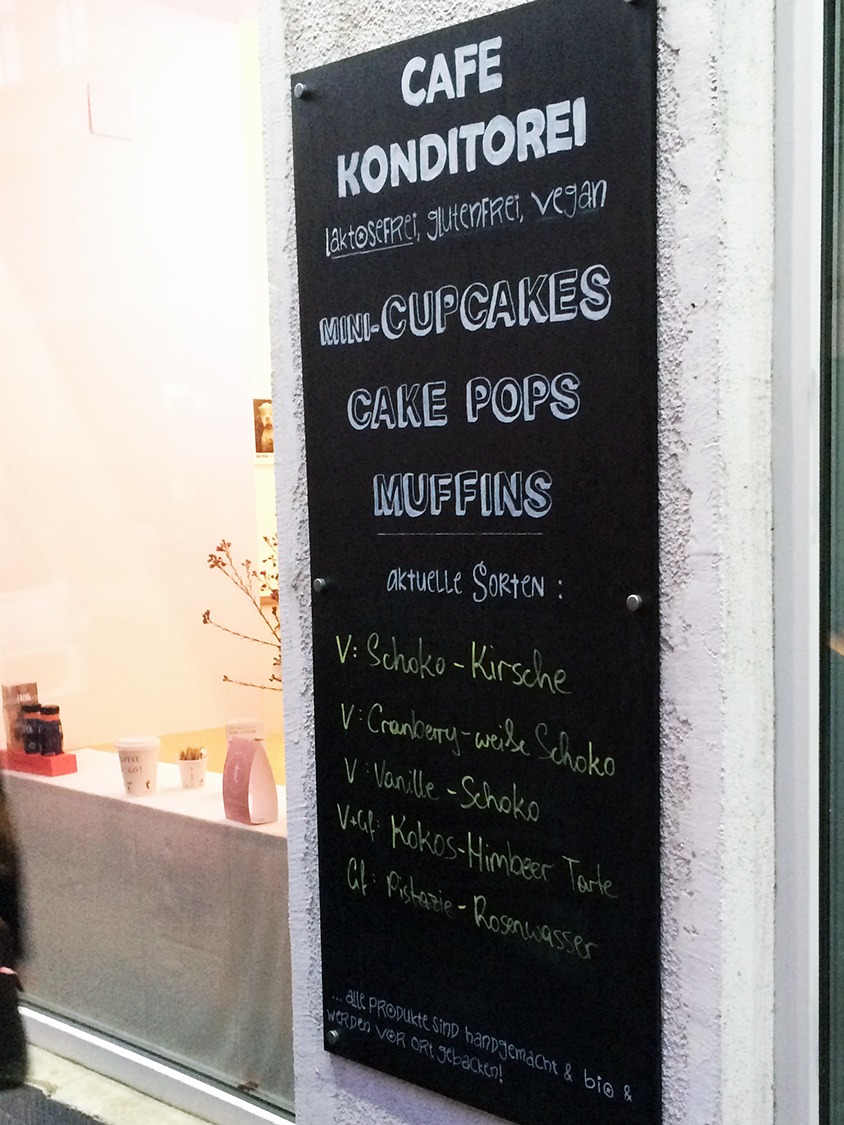 CAFE
KONDITOREI
laktosefrei, glutenfrei, vegan
MINI-CUPCAKES
CAKE POPS
MUFFINS
aktuelle Sorten :
V: Schoko-Kirsche
V: Cranberry-weiße Schoko
V: Vanille-Schoko
V+Gf: Kokos-Himbeer Tarte
Gf: Pistazie-Rosenwasser
... alle Produkte sind handgemacht & bio &
werden vor Ort gebacken!